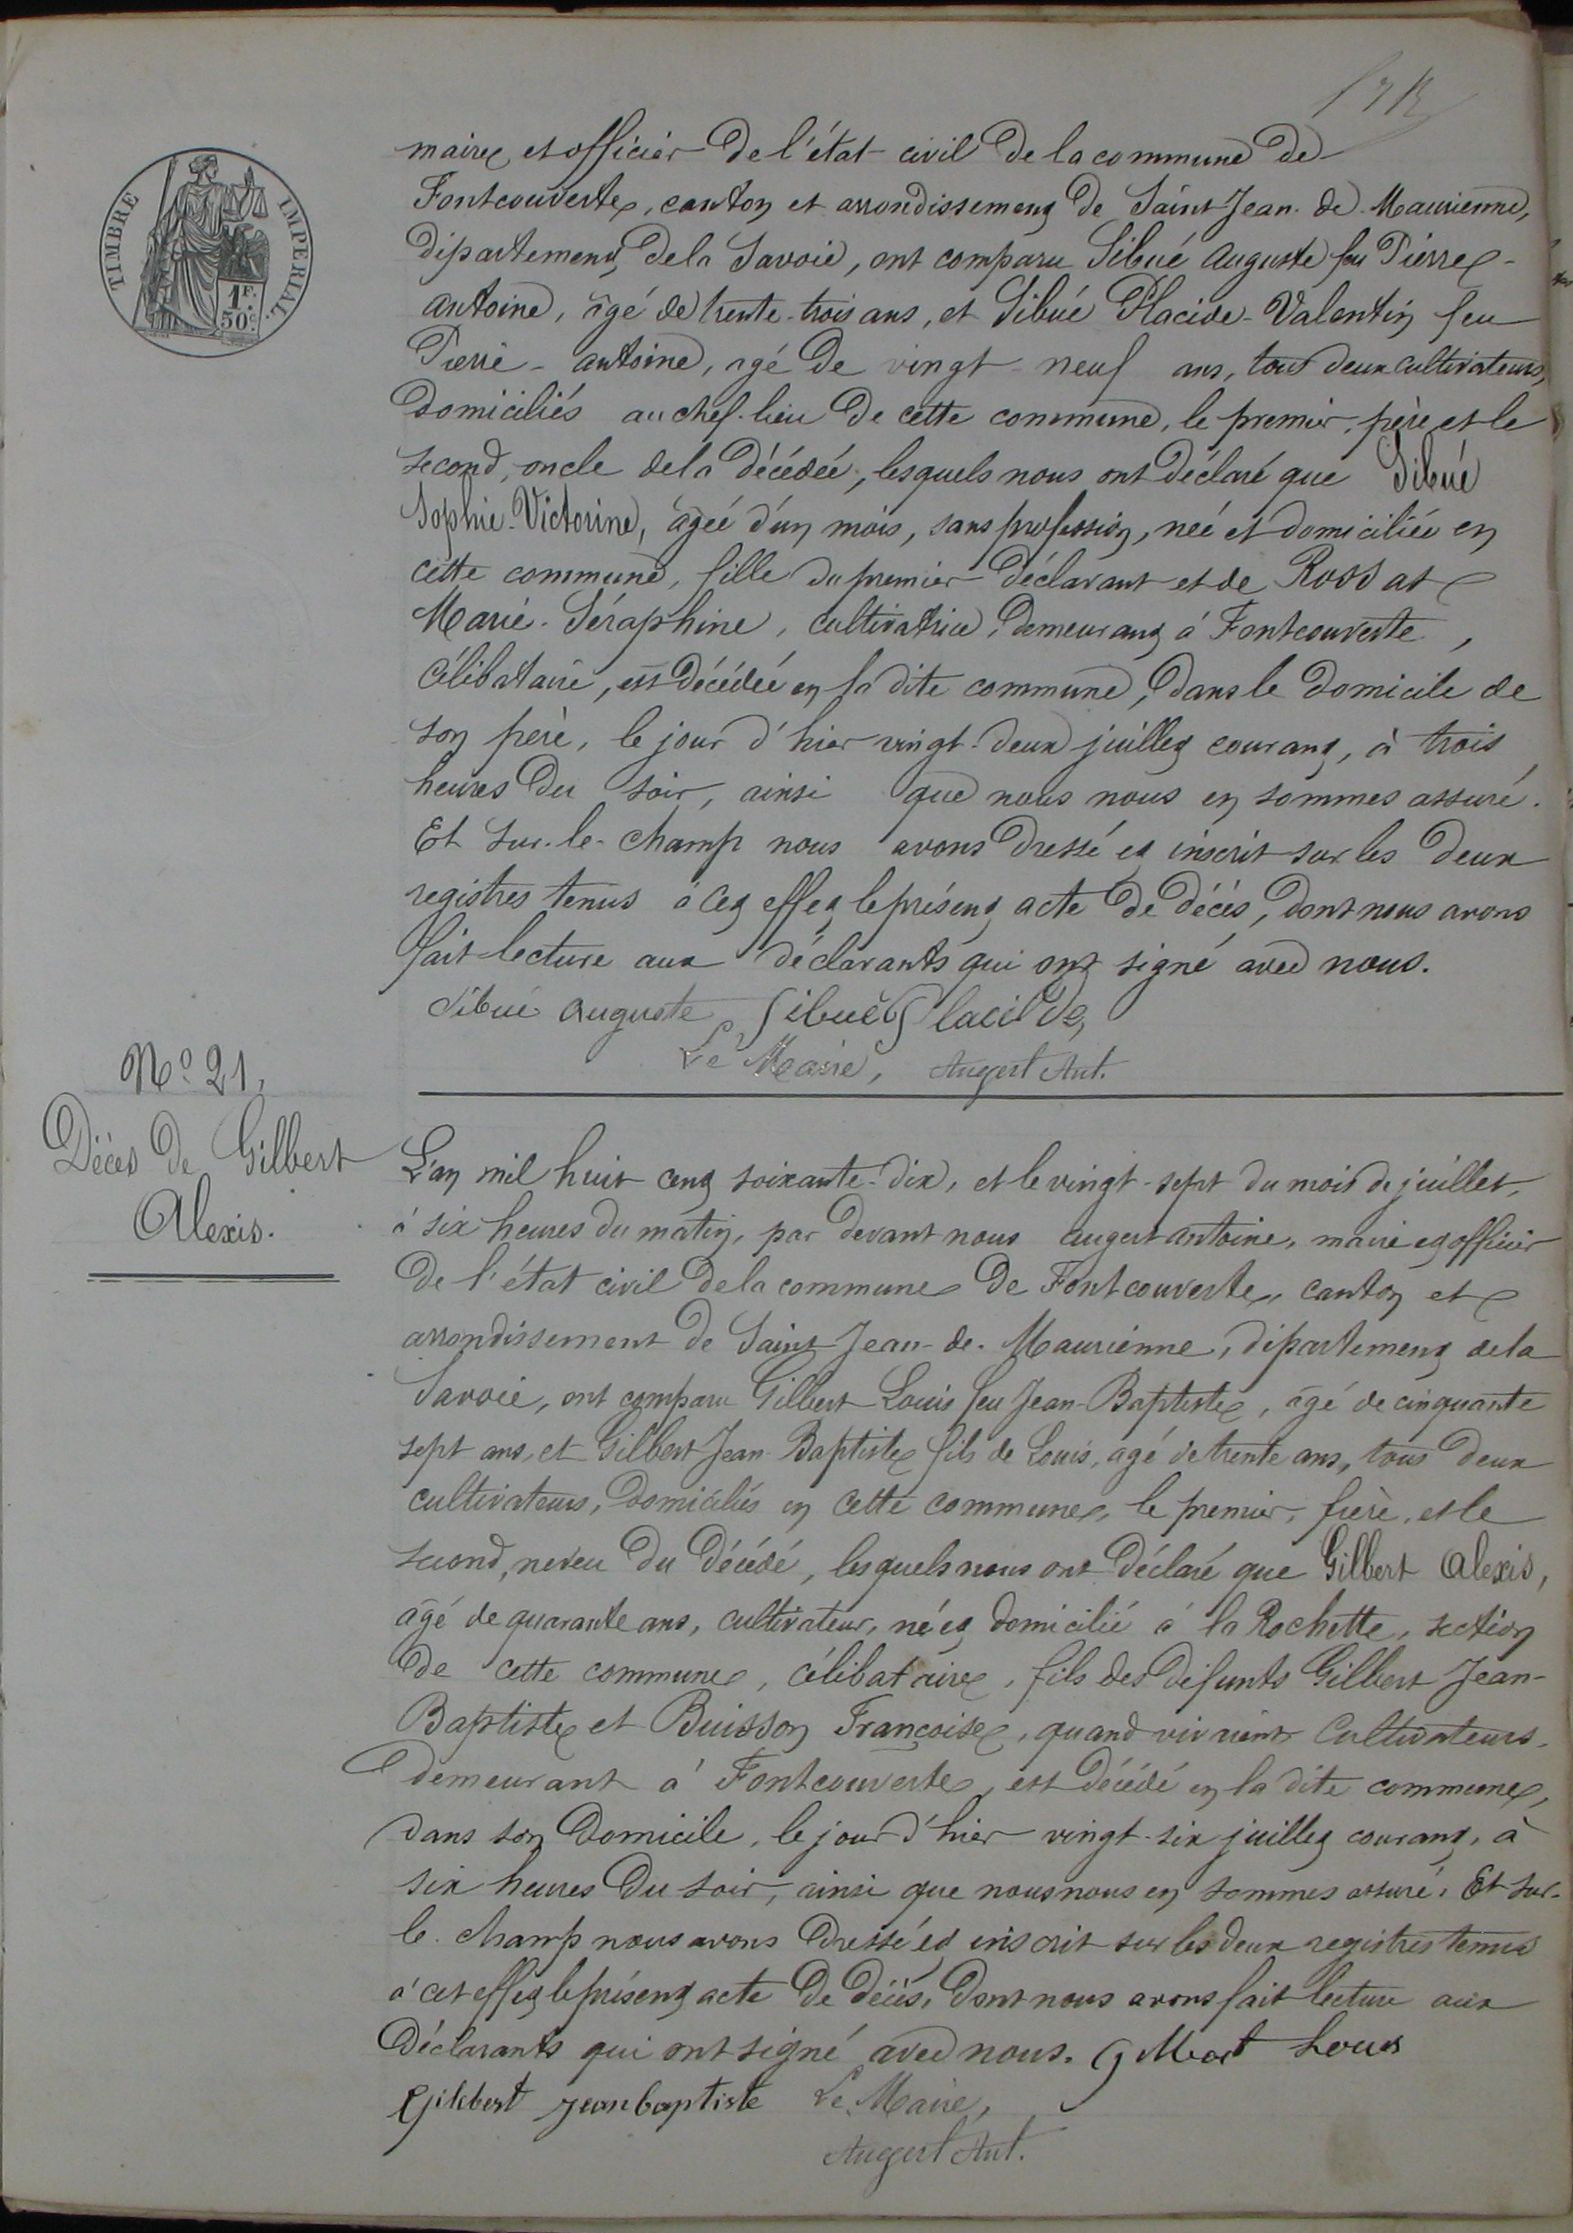 TIMBRE IMPERIAL.
1F.
50C.
maire, et officier de l'état civil de la commune de
Fontcouverte, canton et arrondissement de Saint Jean de Maurienne,
département de la Savoie, ont comparu Sibué Auguste feu Pierre-
antoine, âgé de trente-trois ans, et Sibué Placide-Valentin feu
Pierre-antoine, agé de vingt-neuf ans, tous deux cultivateurs,
domiciliés au chef-lieu de cette commune, le premier, père, et le
second, oncle de la décédée, lesquels nous ont déclaré que Sibué
Sophie-Victorine, âgée d'un mois, sans profession, née et domiciliée en
cette commune, fille du premier déclarant et de Rossat
Marie-Séraphine, cultivatrice, demeurant à Fontcouverte,
célibataire, est décédée en la dite commune, dans le domicile de
son père, le jour d'hier vingt-deux juillet courant, à trois
heures du soir, ainsi que nous nous en sommes assuré.
Et sur-le-champ nous avons dressé et inscrit sur les deux
registres tenus à cet effet le présent acte de décès, dont nous avons
fait lecture aux déclarants qui ont signé avec nous.
Sibué auguste Sibué Placide
Le Maire, Augert Ant.
No 21,
Décès de Gilbert
Alexis.
L'an mil huit cent soixante-dix, et le vingt-sept du mois de juillet,
à six heures du matin, par devant nous augert antoine, maire et officier
de l'état civil de la commune de Fontcouverte, canton et
arrondissement de Saint Jean-de-Maurienne, département de la
Savoie, ont comparu Gilbert Louis feu Jean-Baptiste, âgé de cinquante
sept ans, et Gilbert Jean-Baptiste fils de Louis, agé de trente ans, tous deux
cultivateurs, domiciliés en cette commune, le premier, frère, et le
second, neveu du décédé, lesquels nous ont déclaré que Gilbert Alexis,
âgé de quarante ans, cultivateur, né et domicilié à la Rochette, section
de cette commune, célibataire, fils des défunts Gilbert Jean-
Baptiste et Buisson Françoise, quand vivaient cultivateurs,
demeurant à Fontcouverte, est décédé en la dite commune,
dans son domicile, le jour d'hier vingt-six juillet courant, à
six heures du soir, ainsi que nous nous en sommes assuré. Et sur-
le-champ nous avons dressé et inscrit sur les deux registres tenus
à cet effet le présent acte de décès, dont nous avons fait lecture aux
déclarants qui ont signé avec nous. gilbert Louis
Gilbert jeanbaptiste Le Maire,
Augert Ant.